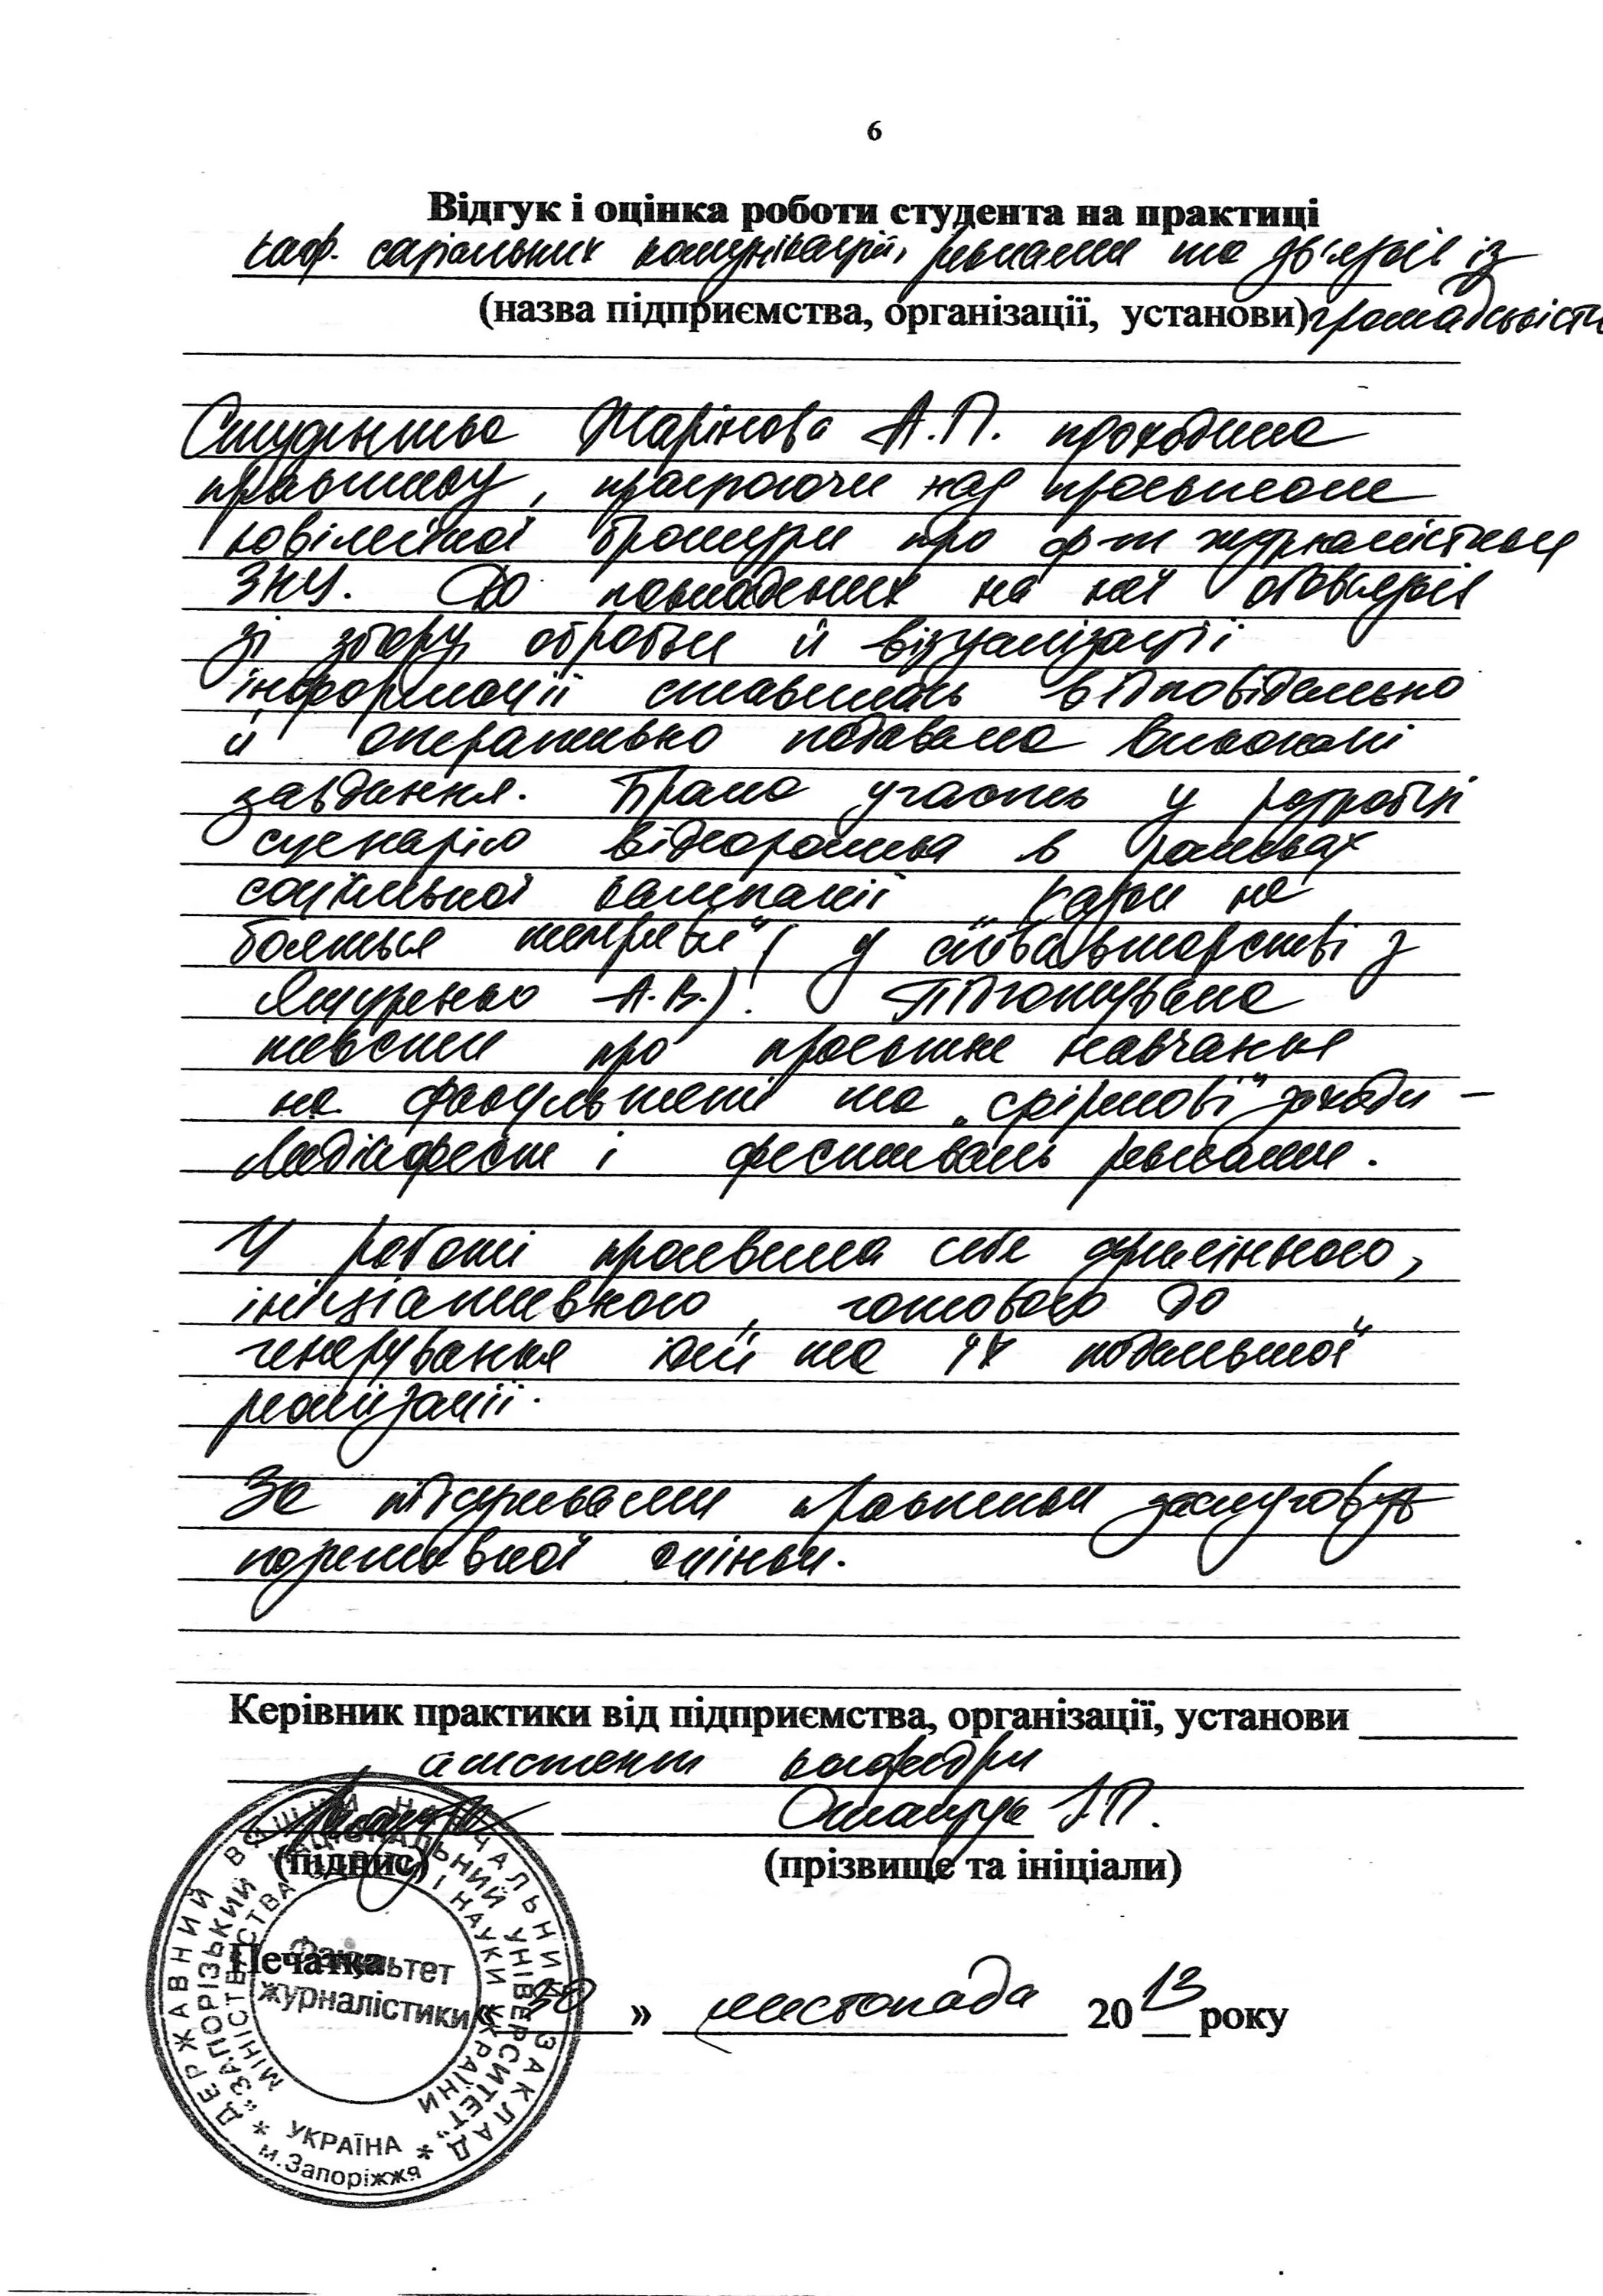 6
Відгук і оцінка роботи студента на практиці
каф. соціальних комунікацій, реклами та зв'язків із
(назва підприємства, організації, установи) громадськістю
Студентка Марінова А.П. проходила
практику, працюючи над проектом
ювілейної брошури про ф-т журналістики
ЗНУ. До покладених на неї обов'язків
зі збору, обробки й візуалізації
інформації ставилась відповідально
й оперативно подавала виконані
завдання. Брала участь у розробці
сценарію відеоролика в рамках
соціальної кампанії „ на
бояться темряви" (у співавторстві з
А.В.). Підготувала
тексти про проектне навчання
на факультеті та „фірмові" заходи –
Медіафест і фестиваль реклами.
У роботі проявила себе
ініціативною, готовою до
генерування ідей та їх подальшої
реалізації.
За підсумками практики заслуговує
позитивної оцінки.
Керівник практики від підприємства, організації, установи
асистент кафедри
(підпис) (прізвище та ініціали)
Печатка
« 30 » листопада 2013 року
ДЕРЖАВНИЙ ВИЩИЙ НАВЧАЛЬНИЙ ЗАКЛАД
„ЗАПОРІЗЬКИЙ НАЦІОНАЛЬНИЙ УНІВЕРСИТЕТ"
МІНІСТЕРСТВА ОСВІТИ І НАУКИ УКРАЇНИ
Факультет
журналістики
УКРАЇНА
м.Запоріжжя